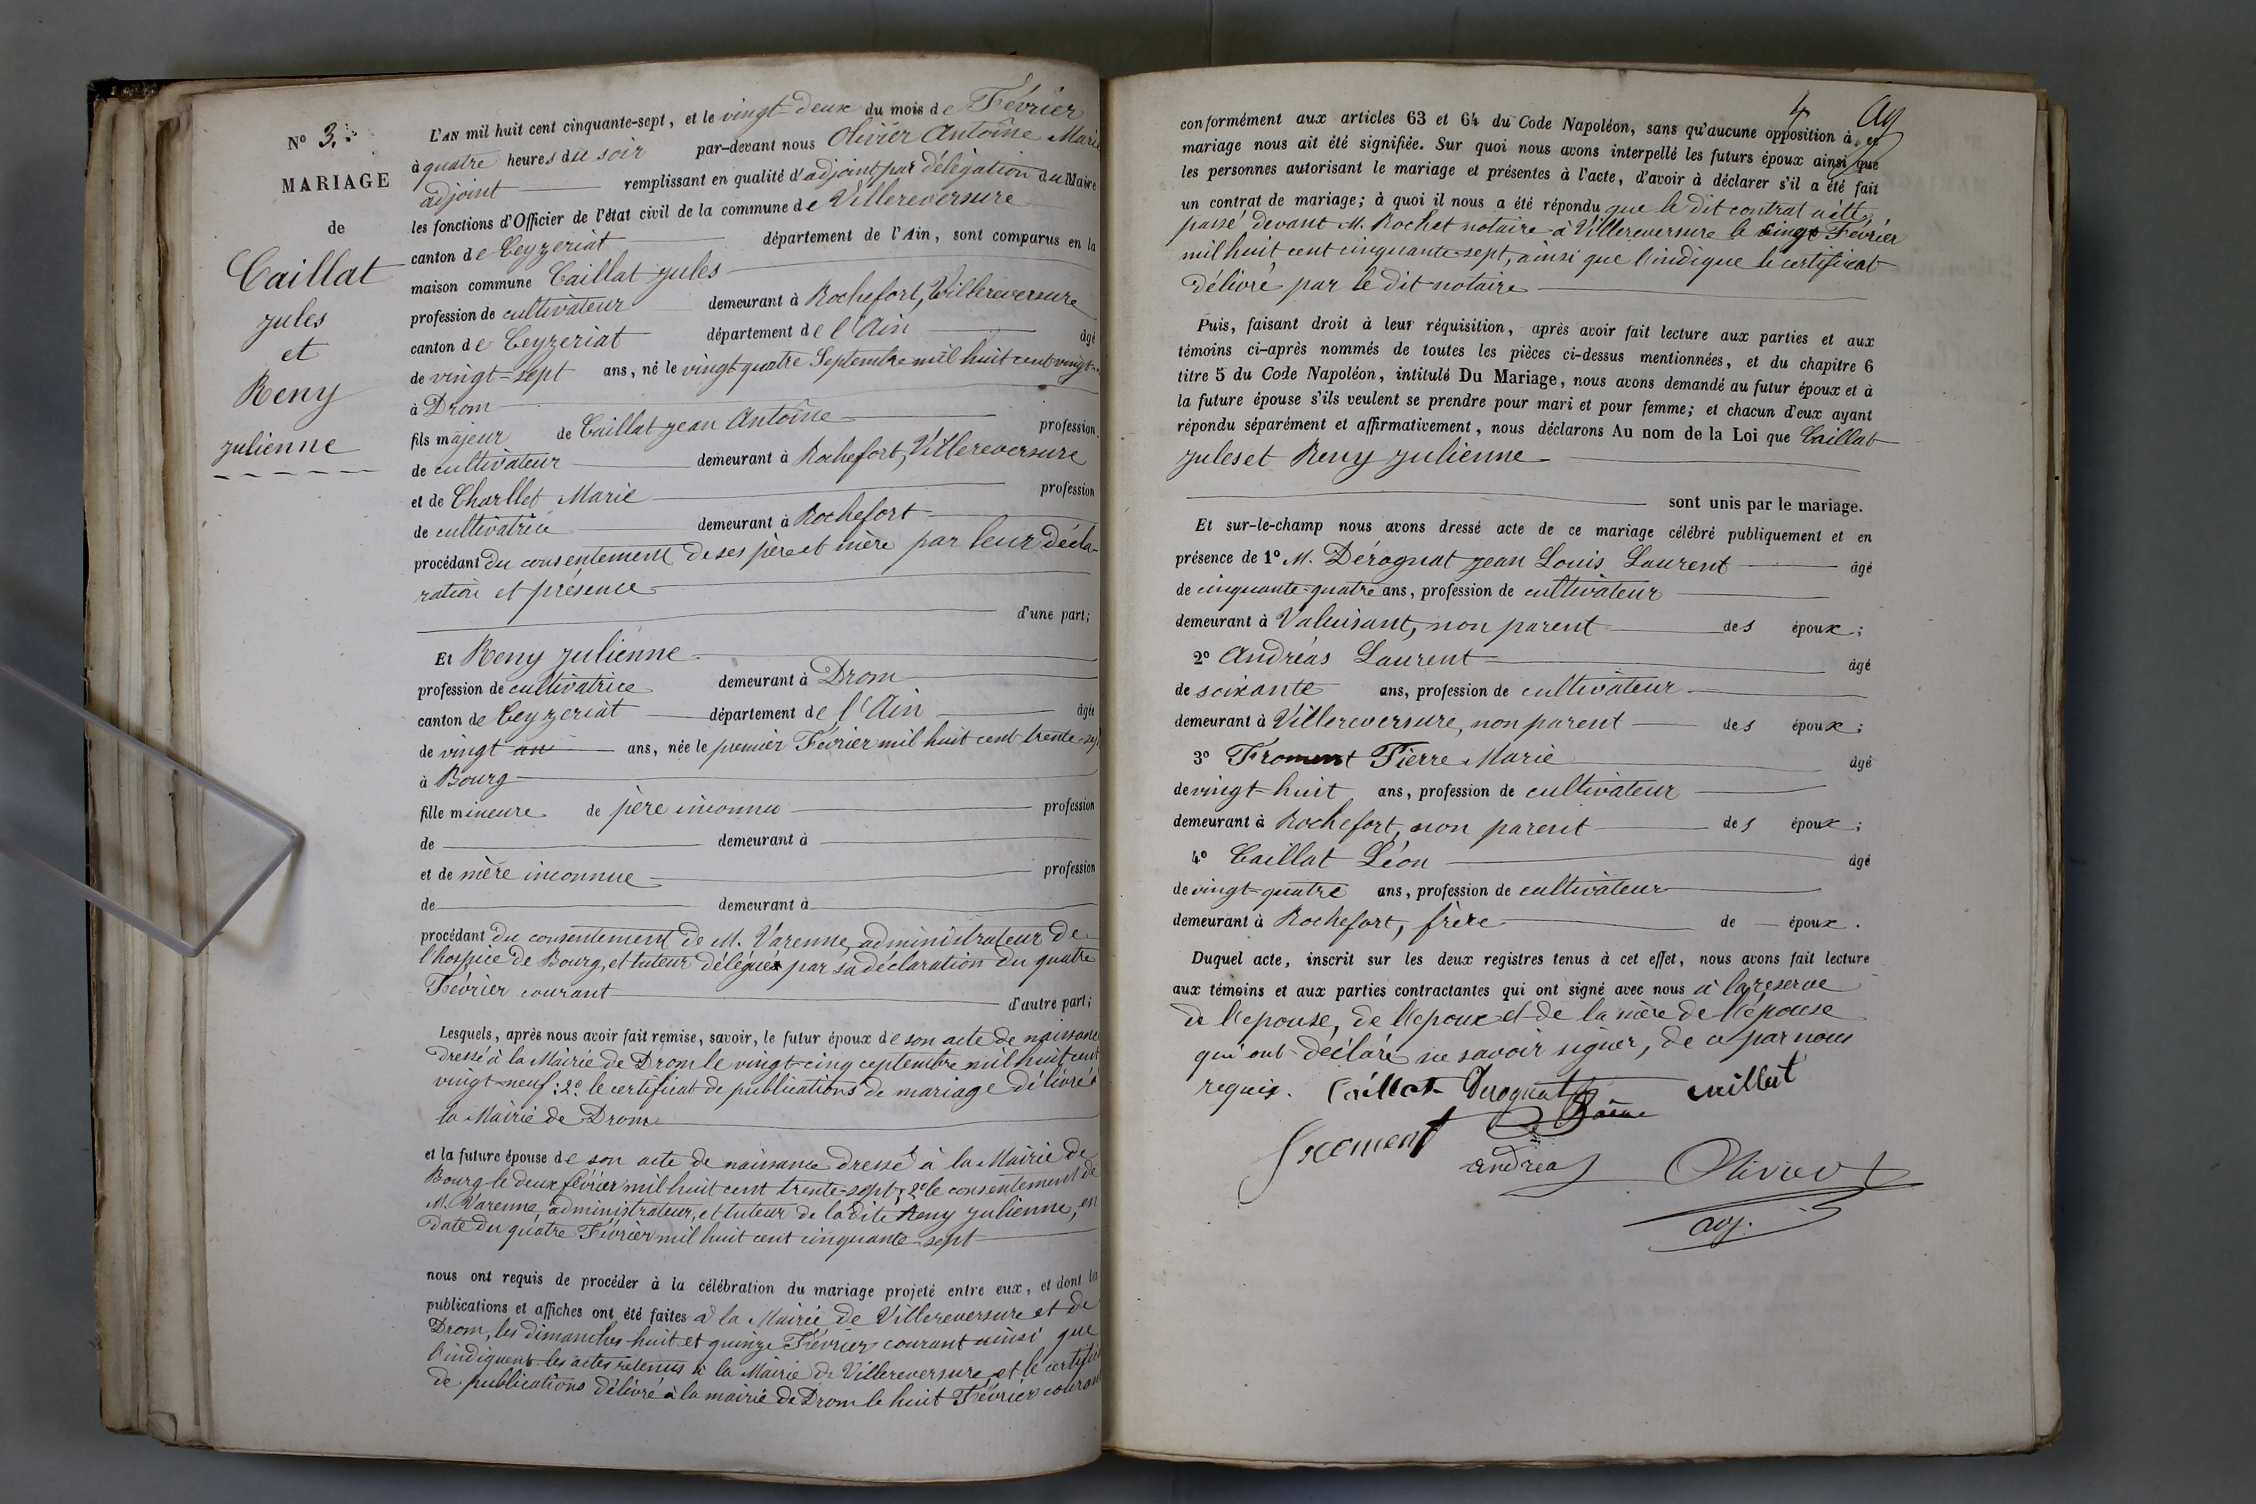 N° 3.
MARIAGE
de
Caillat
Jules
et
Reny
Julienne
L'AN mil huit cent cinquante-sept, et le vingt-deux du mois de Février
à quatre heures du soir par-devant nous Olivier Antoine Marie
adjoint remplissant en qualité d'adjoint par délégation du Maire
les fonctions d'Officier de l'état civil de la commune de Villereversure
canton de Ceyzeriat département de l'Ain, sont comparus en la
maison commune Caillat Jules
profession de cultivateur demeurant à Rochefort, Villereversure
canton de Ceyzeriat département de l'Ain âgé
de vingt-sept ans, né le vingt-quatre Septembre mil huit cent vingt-
à Drom
fils majeur de Caillat Jean Antoine profession
de cultivateur demeurant à Rochefort, Villereversure
et de Charllet Marie profession
de cultivatrice demeurant à Rochefort
procédant du consentement de ses père et mère par leur décla-
ration et présence
d'une part;
Et Reny Julienne
profession de cultivatrice demeurant à Drom
canton de Ceyzeriat département de l'Ain âgée
de vingt an ans, née le premier Février mil huit cent trente-sept
à Bourg
fille mineure de père inconnu profession
de demeurant à
et de mère inconnue profession
de demeurant à
procédant du consentement de M. Varenne, administrateur de
l'hospice de Bourg, et tuteur délégué par sa déclaration du quatre
Février courant
d'autre part;
Lesquels, après nous avoir fait remise, savoir, le futur époux de son acte de naissance
dressé à la Mairie de Drom le vingt-cinq ceptembre mil huit cent
vingt-neuf: 2° le certificat de publications de mariage délivré à
la Mairie de Drom
et la future épouse de son acte de naissance dressé à la Mairie de
Bourg le deux février mil huit cent trente-sept; 2° le consentement de
M. Varenne, administrateur, et tuteur de la dite Reny Julienne, en
date du quatre Février mil huit cent cinquante-sept
nous ont requis de procéder à la célébration du mariage projeté entre eux, et dont la
publications et affiches ont été faites à la Mairie de Villereversure et de
Drom, les dimanches huit et quinze Février courant ainsi que
l'indiquent les actes retenus à la Mairie de Villereversure et le certificat
de publications délivré à la mairie de Drom le huit Février courant
4 Aj
conformément aux articles 63 et 64 du Code Napoléon, sans qu'aucune opposition à ce
mariage nous ait été signifiée. Sur quoi nous avons interpellé les futurs époux ainsi que
les personnes autorisant le mariage et présentes à l'acte, d'avoir à déclarer s'il a été fait
un contrat de mariage; à quoi il nous a été répondu que le dit contrat a été
passé devant M. Rochet notaire à Villereversure le vingt Février
mil huit cent cinquante-sept, ainsi que l'indique le certificat
délivré par le dit notaire
Puis, faisant droit à leur réquisition, après avoir fait lecture aux parties et aux
témoins ci-après nommés de toutes les pièces ci-dessus mentionnées, et du chapitre 6
titre 5 du Code Napoléon, intitulé Du Mariage, nous avons demandé au futur époux et à
la future épouse s'ils veulent se prendre pour mari et pour femme; et chacun d'eux ayant
répondu séparément et affirmativement, nous déclarons Au nom de la Loi que Caillat
Jules et Reny Julienne
sont unis par le mariage.
Et sur-le-champ nous avons dressé acte de ce mariage célébré publiquement et en
présence de 1° M. Dérognat Jean Louis Laurent âgé
de cinquante-quatre ans, profession de cultivateur
demeurant à Valuisant, non parent des époux;
2° Andréas Laurent âgé
de soixante ans, profession de cultivateur
demeurant à Villereversure, non parent des époux;
3° Froment Pierre Marie âgé
de vingt-huit ans, profession de cultivateur
demeurant à Rochefort, non parent des époux;
4° Caillat Léon âgé
de vingt-quatre ans, profession de cultivateur
demeurant à Rochefort, frère de époux.
Duquel acte, inscrit sur les deux registres tenus à cet effet, nous avons fait lecture
aux témoins et aux parties contractantes qui ont signé avec nous à la reserve
de l'epouse, de l'epoux et de la mère de l'épouse
qui ont déclaré ne savoir signer, de ce par nous
requis. Caillat Derognat caillat
froment andreas Olivier
adj.